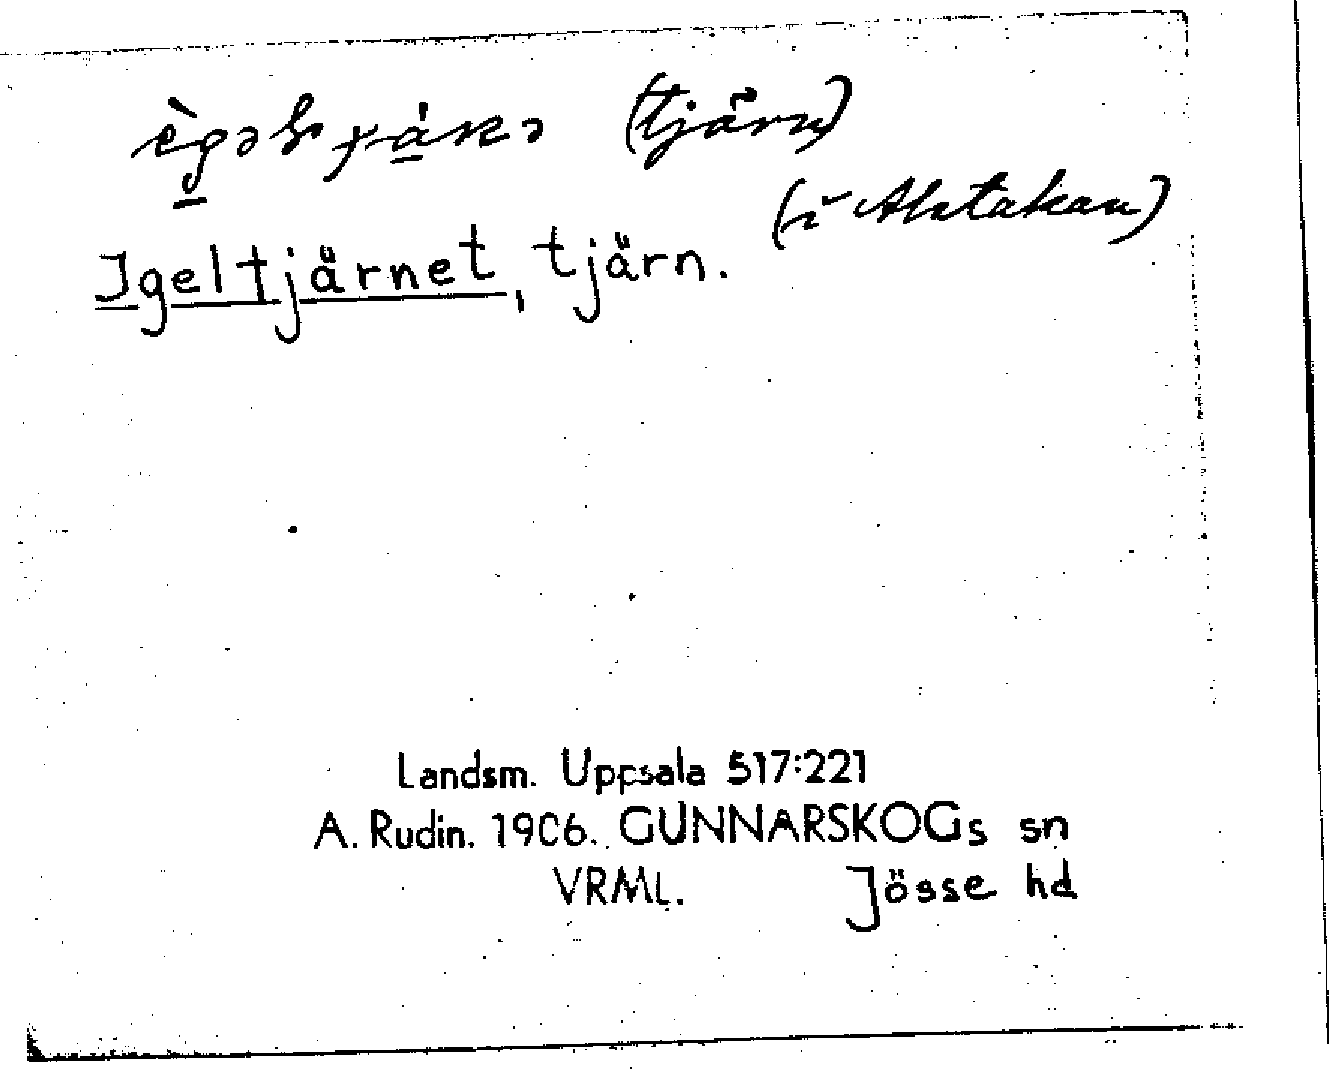 (tjärn)
(i Alstakan)
Igeltjärnet, tjärn.
Landsm. Uppsala 517:221
A. Rudin. 1906. GUNNARSKOGs sn
VRML. Jösse hd